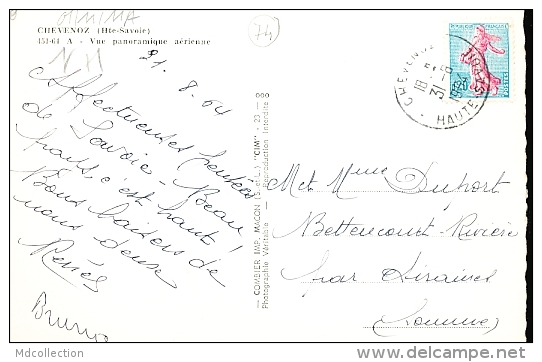 MINIMA
74
CHEVENOZ (Hte-Savoie)
453-64 A - Vue panoramique aérienne
31. 8. 64
Affectueuses pensées
de Savoie. Beau,
mais c'est haut.
Bons baisers de
nous deux
Renée
Bruno
COMBIER IMP. MACON (S.-et-L.) "CIM"
Photographie Véritable - Reproduction Interdite
REPUBLIQUE FRANÇAISE
POSTES
CHEVENOZ
18 H
31-8
1964
HAUTE SAVOIE
M et Mme Duport
Bettencourt-Rivière
par Airaines
Somme
Mdcollection
http://mdcollection.delcampe.net